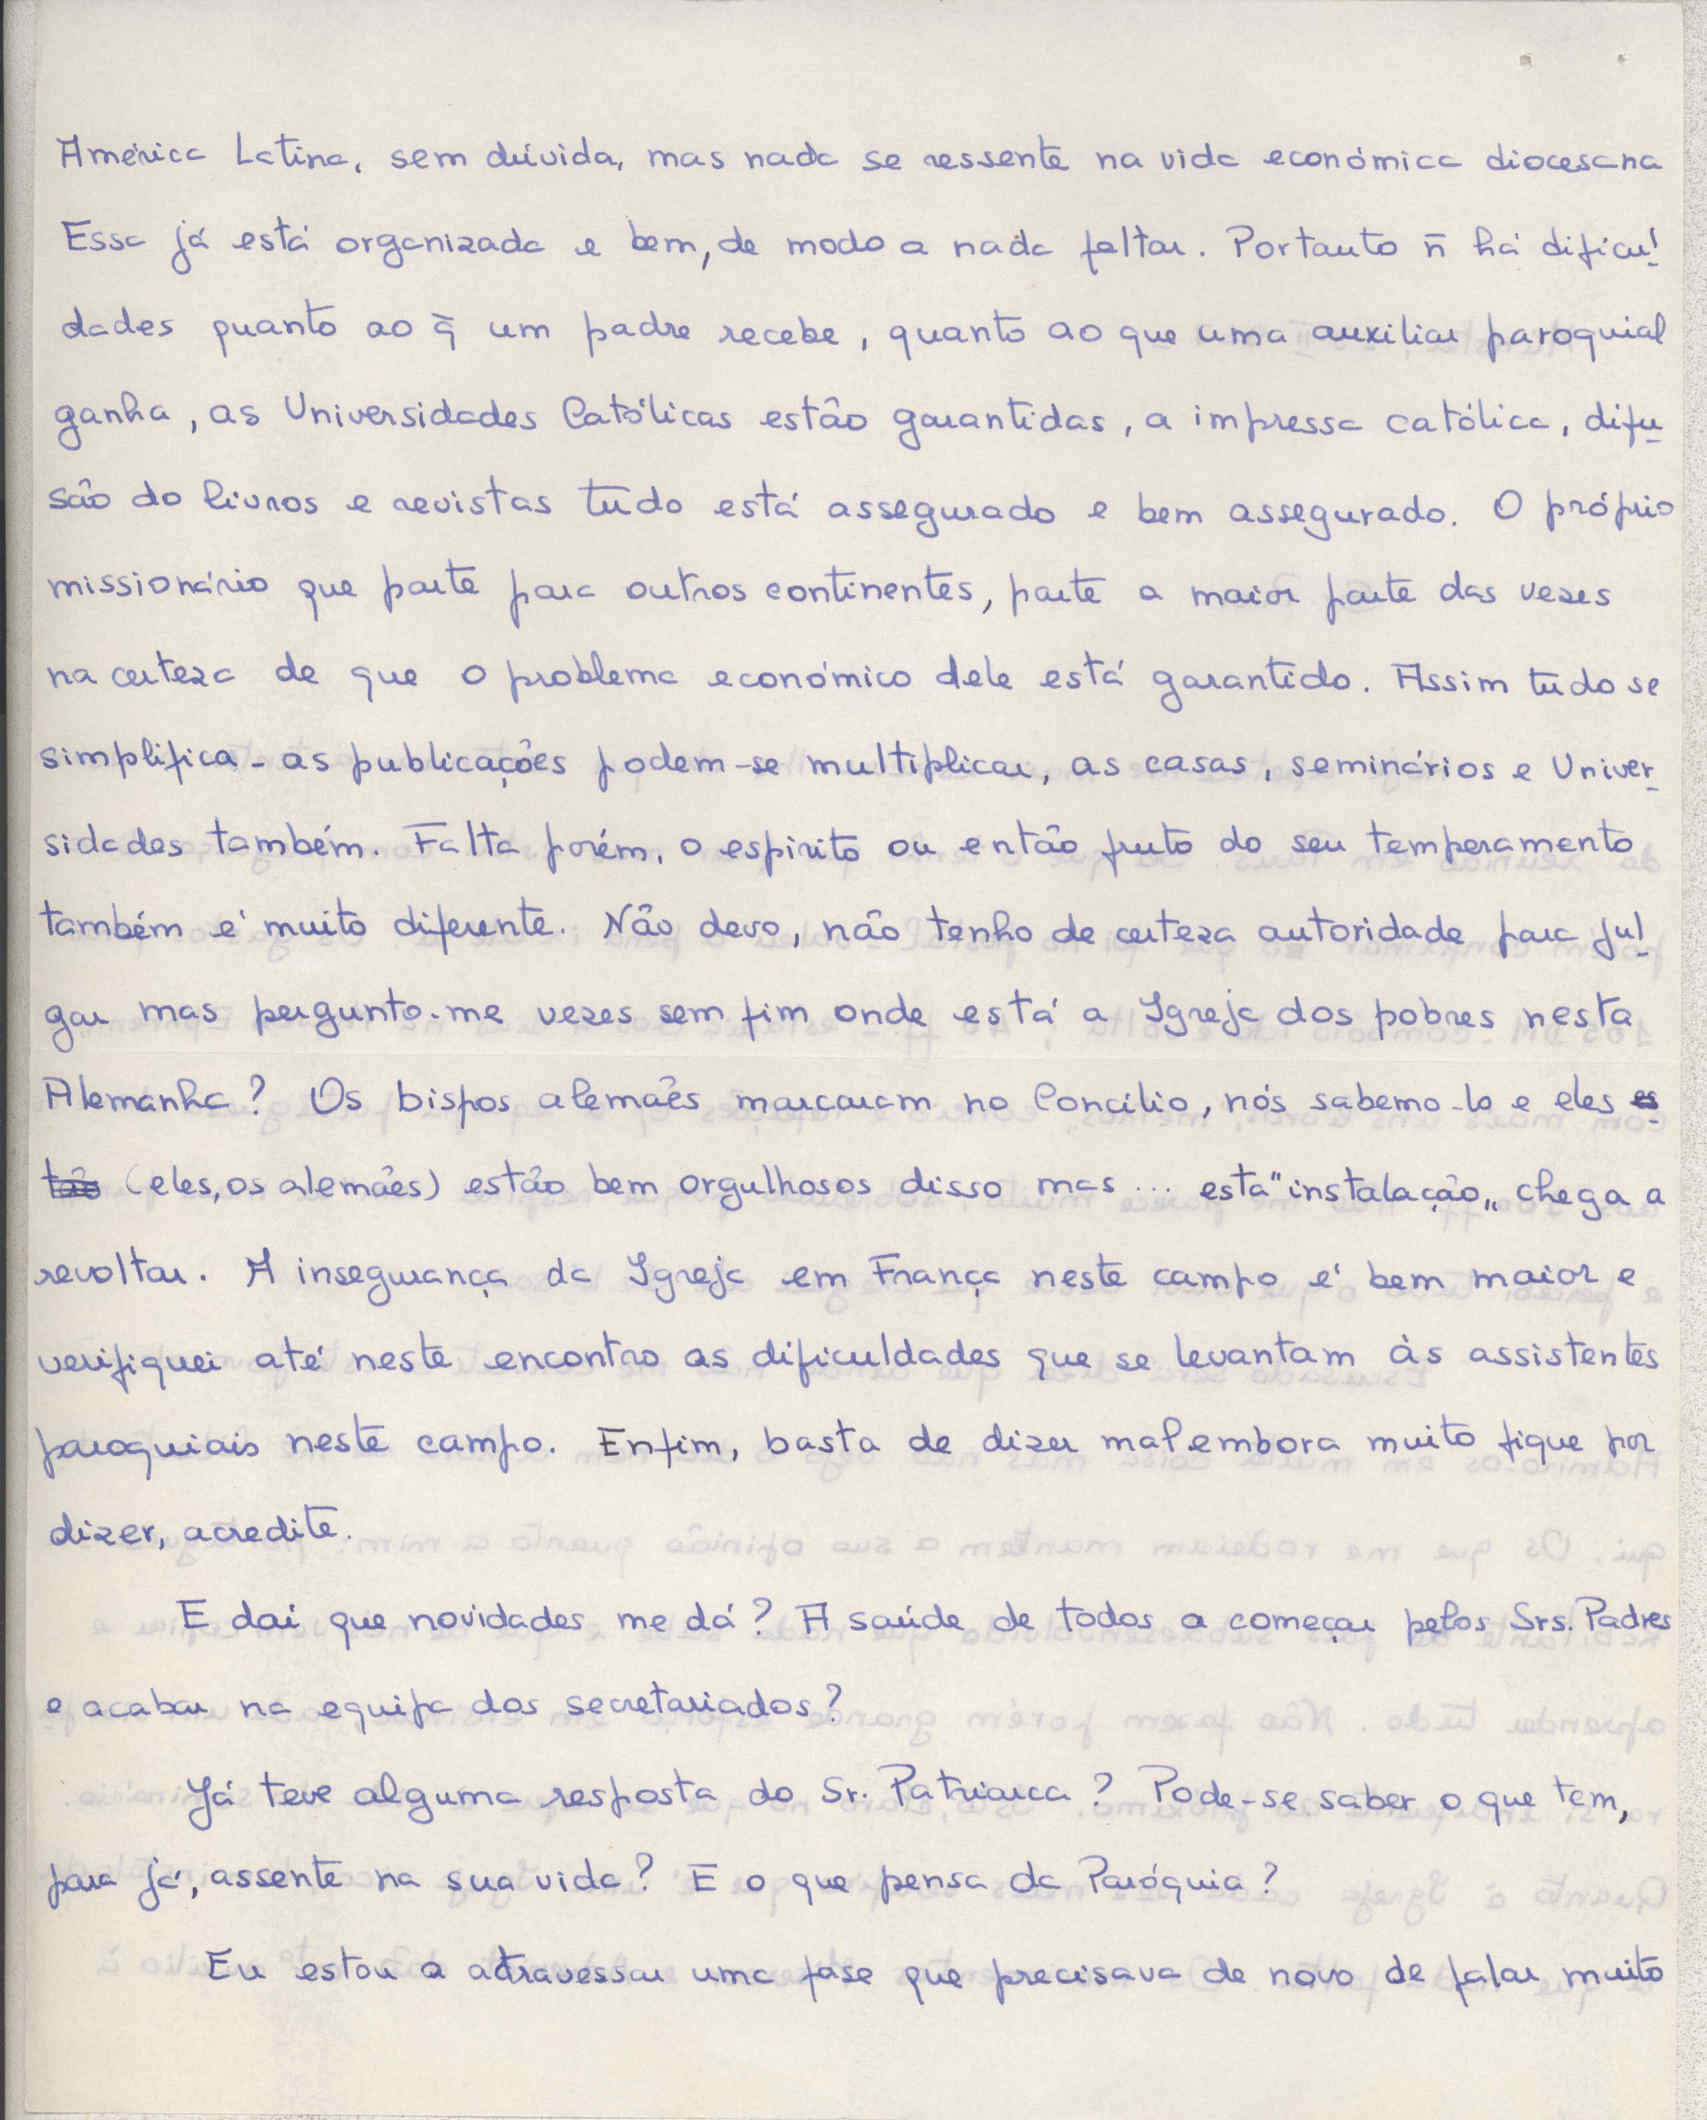 América Latina, sem dúvida, mas nada se ressente na vida económica diocesana
Essa já está organizada e bem, de modo a nada faltar. Portanto ñ há dificul
dades quanto ao q̃ um padre recebe, quanto ao que uma auxiliar paroquial
ganha, as Universidades Católicas estão garantidas, a impressa católica, difu
são do livros e revistas tudo está assegurado e bem assegurado. O próprio
missionário que parte para outros continentes, parte a maior parte das vezes
na certeza de que o problema económico dele está garantido. Assim tudo se
simplifica - as publicações podem-se multiplicar, as casas, seminários e Univer
sidades também. Falta porém, o espirito ou então fruto do seu temperamento
também é muito diferente. Não devo, não tenho de certeza autoridade para jul
gar mas pergunto-me vezes sem fim onde está a Igreja dos pobres nesta
Alemanha? Os bispos alemães marcaram no Concílio, nós sabemo-lo e eles es
tão (eles, os alemães) estão bem orgulhosos disso mas ... esta "instalação„ chega a
revoltar. A insegurança da Igreja em França neste campo é bem maior e
verifiquei até neste encontro as dificuldades que se levantam às assistentes
paroquiais neste campo. Enfim, basta de dizer mal embora muito fique por
dizer, acredite.
E daí que novidades me dá? A saúde de todos a começar pelos Srs. Padres
e acabar na equipa dos secretariados?
Já teve alguma resposta do Sr. Patriarca? Pode-se saber o que tem,
para já, assente na sua vida? E o que pensa da Paróquia?
Eu estou a atravessar uma fase que precisava de novo de falar muito